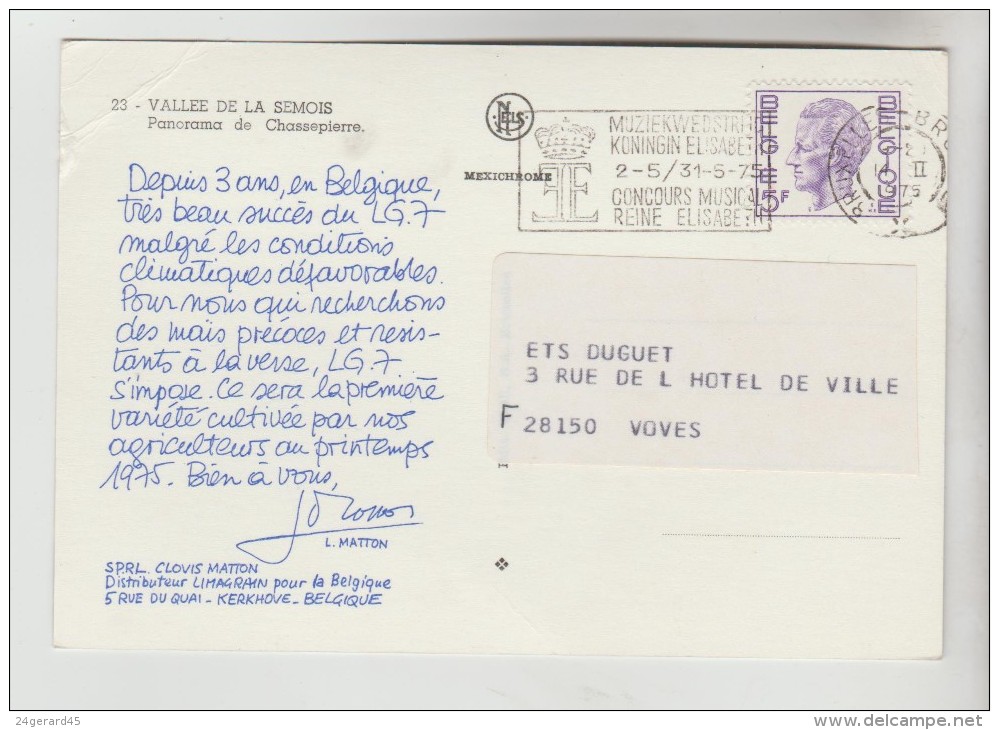 23 - VALLEE DE LA SEMOIS
Panorama de Chassepierre.
NELS
MEXICHROME
MUZIEKWEDSTRIJ
KONINGIN ELISABETH
2-5/31-5-75
CONCOURS MUSICAL
REINE ELISABETH
BELGIE
BELGIQUE
5F
BRUXELLES
BRUS
II
1975
Depuis 3 ans, en Belgique,
très beau succès du LG.7
malgré les conditions
climatiques défavorables.
Pour nous qui recherchons
des mais précoces et resis-
tants à la verse, LG.7
s'impose. Ce sera la première
variété cultivée par nos
agriculteurs au printemps
1975. Bien à vous,
L. MATTON
SPRL. CLOVIS MATTON
Distributeur LIMAGRAIN pour la Belgique
5 RUE DU QUAI - KERKHOVE - BELGIQUE
ETS DUGUET
3 RUE DE L HOTEL DE VILLE
F 28150 VOVES
24gerard45
delcampe.net